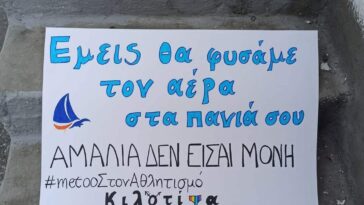 Εμεις θα φυσάμε
τον αέρα
στα πανιά σου
ΑΜΑΛΙΑ ΔΕΝ ΕΙΣΑΙ ΜΟΝΗ
#metooΣτονΑθλητισμό